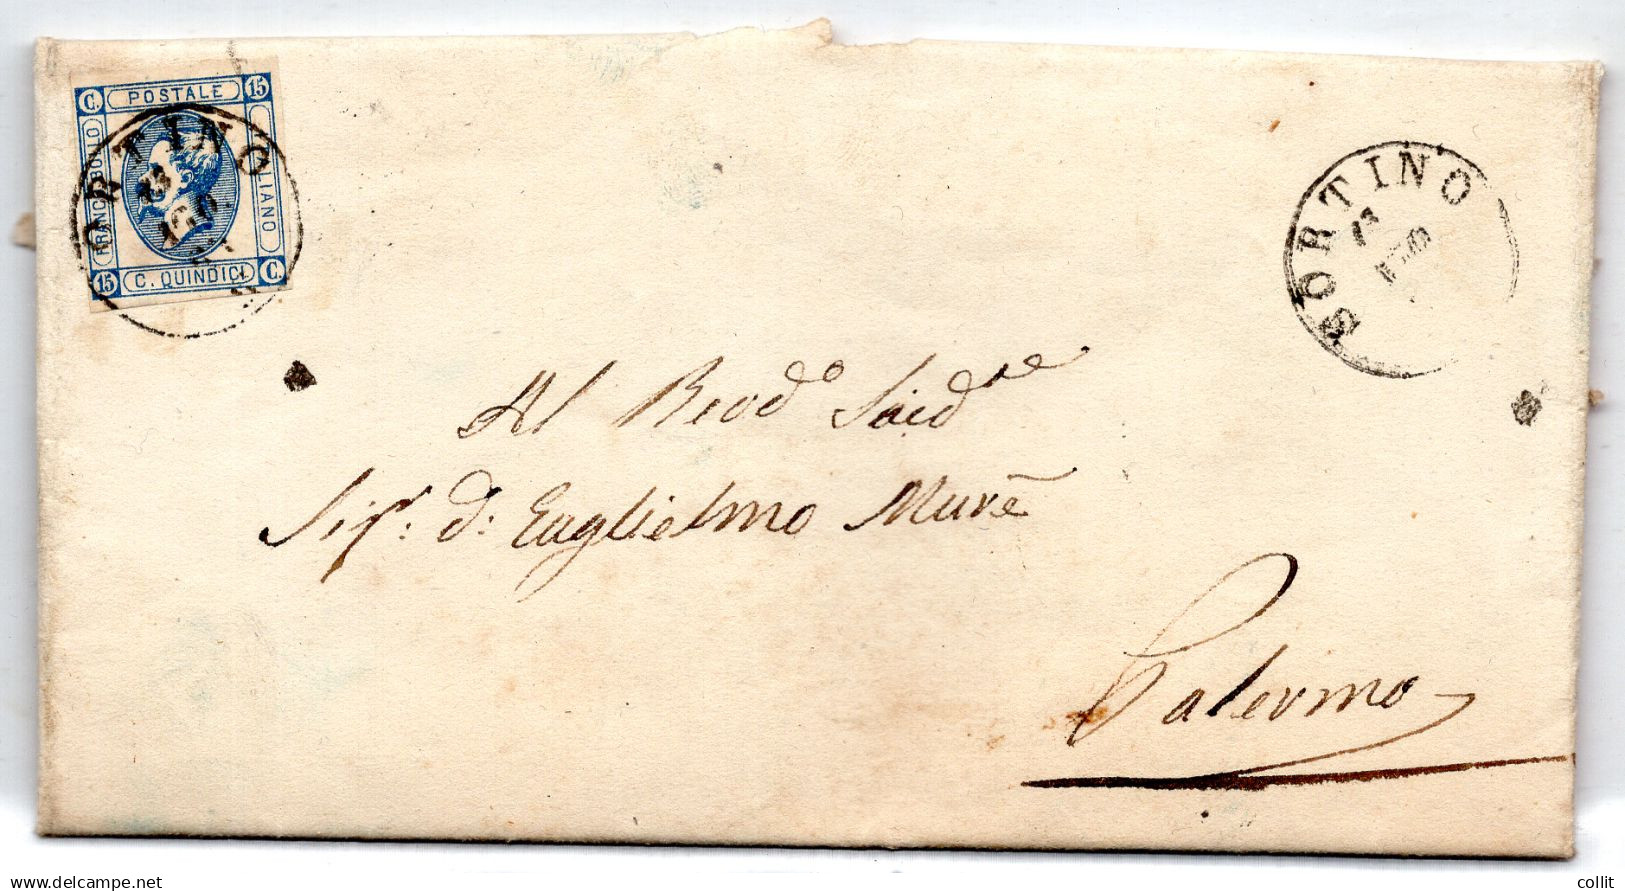 C. POSTALE 15
FRANCO BOLLO
ITALIANO
15 C. QUINDICI C.
SORTINO
13
AGO.
SORTINO
13
AGO
Al Revd.o Sacd.te
Sig.r D: Guglielmo Murè
Palermo
www.delcampe.net
collit